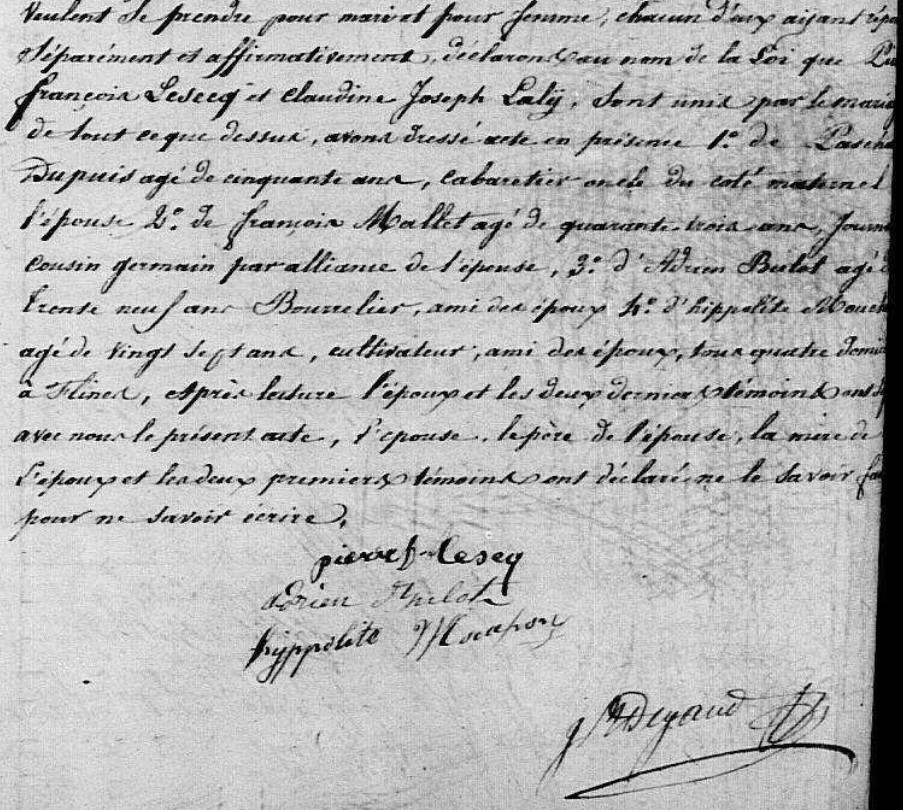 veulent se prendre pour mari et pour femme, chacun d'eux ayant répo
séparément et affirmativement, déclarons au nom de la Loi que Pie
françois Lesecq et Claudine Joseph Laly, sont unis par le maria
de tout ce que dessus, avons dressé acte en présence 1.º de Pascha
Dupuis agé de cinquante ans, cabaretier oncle du coté maternel
l'épouse 2.º de françois Mallet agé de quarante trois ans, Journ
cousin germain par alliance de l'épouse, 3.º d'Adrien Bulot agé d
trente neuf ans Bourrelier, ami des époux 4.º d'hippolite Mouch
agé de vingt sept ans, cultivateur, ami des époux, tous quatre domic
à Flines, et après lecture l'époux et les deux derniers témoins ont
avec nous le présent acte, l'épouse, le père de l'épouse, la mère de
l'époux et les deux premiers témoins ont déclaré ne le savoir fai
pour ne savoir écrire.
pierre f. Lesecq
adrien Bulot
hyppolite